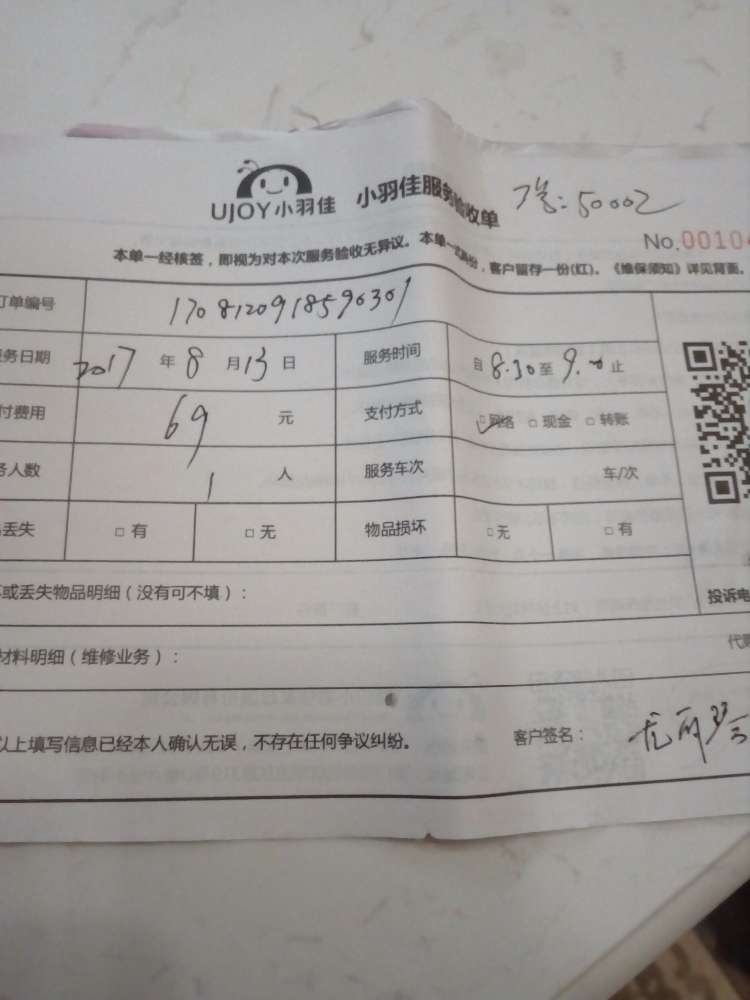 UJOY小羽佳 小羽佳服务验收单 工号:50002
No.00104
本单一经核签，即视为对本次服务验收无异议。本单一式两份，客户留存一份(红)。《维保须知》详见背面。
订单编号 1708120918590301
服务日期 2017 年 8 月 13 日 服务时间 自 8.30 至 9.00 止
付费用 69 元 支付方式 网络 现金 转账
务人数 1 人 服务车次 车/次
丢失 有 无 物品损坏 无 有
或丢失物品明细（没有可不填）：
投诉电
材料明细（维修业务）：
以上填写信息已经本人确认无误，不存在任何争议纠纷。 客户签名：